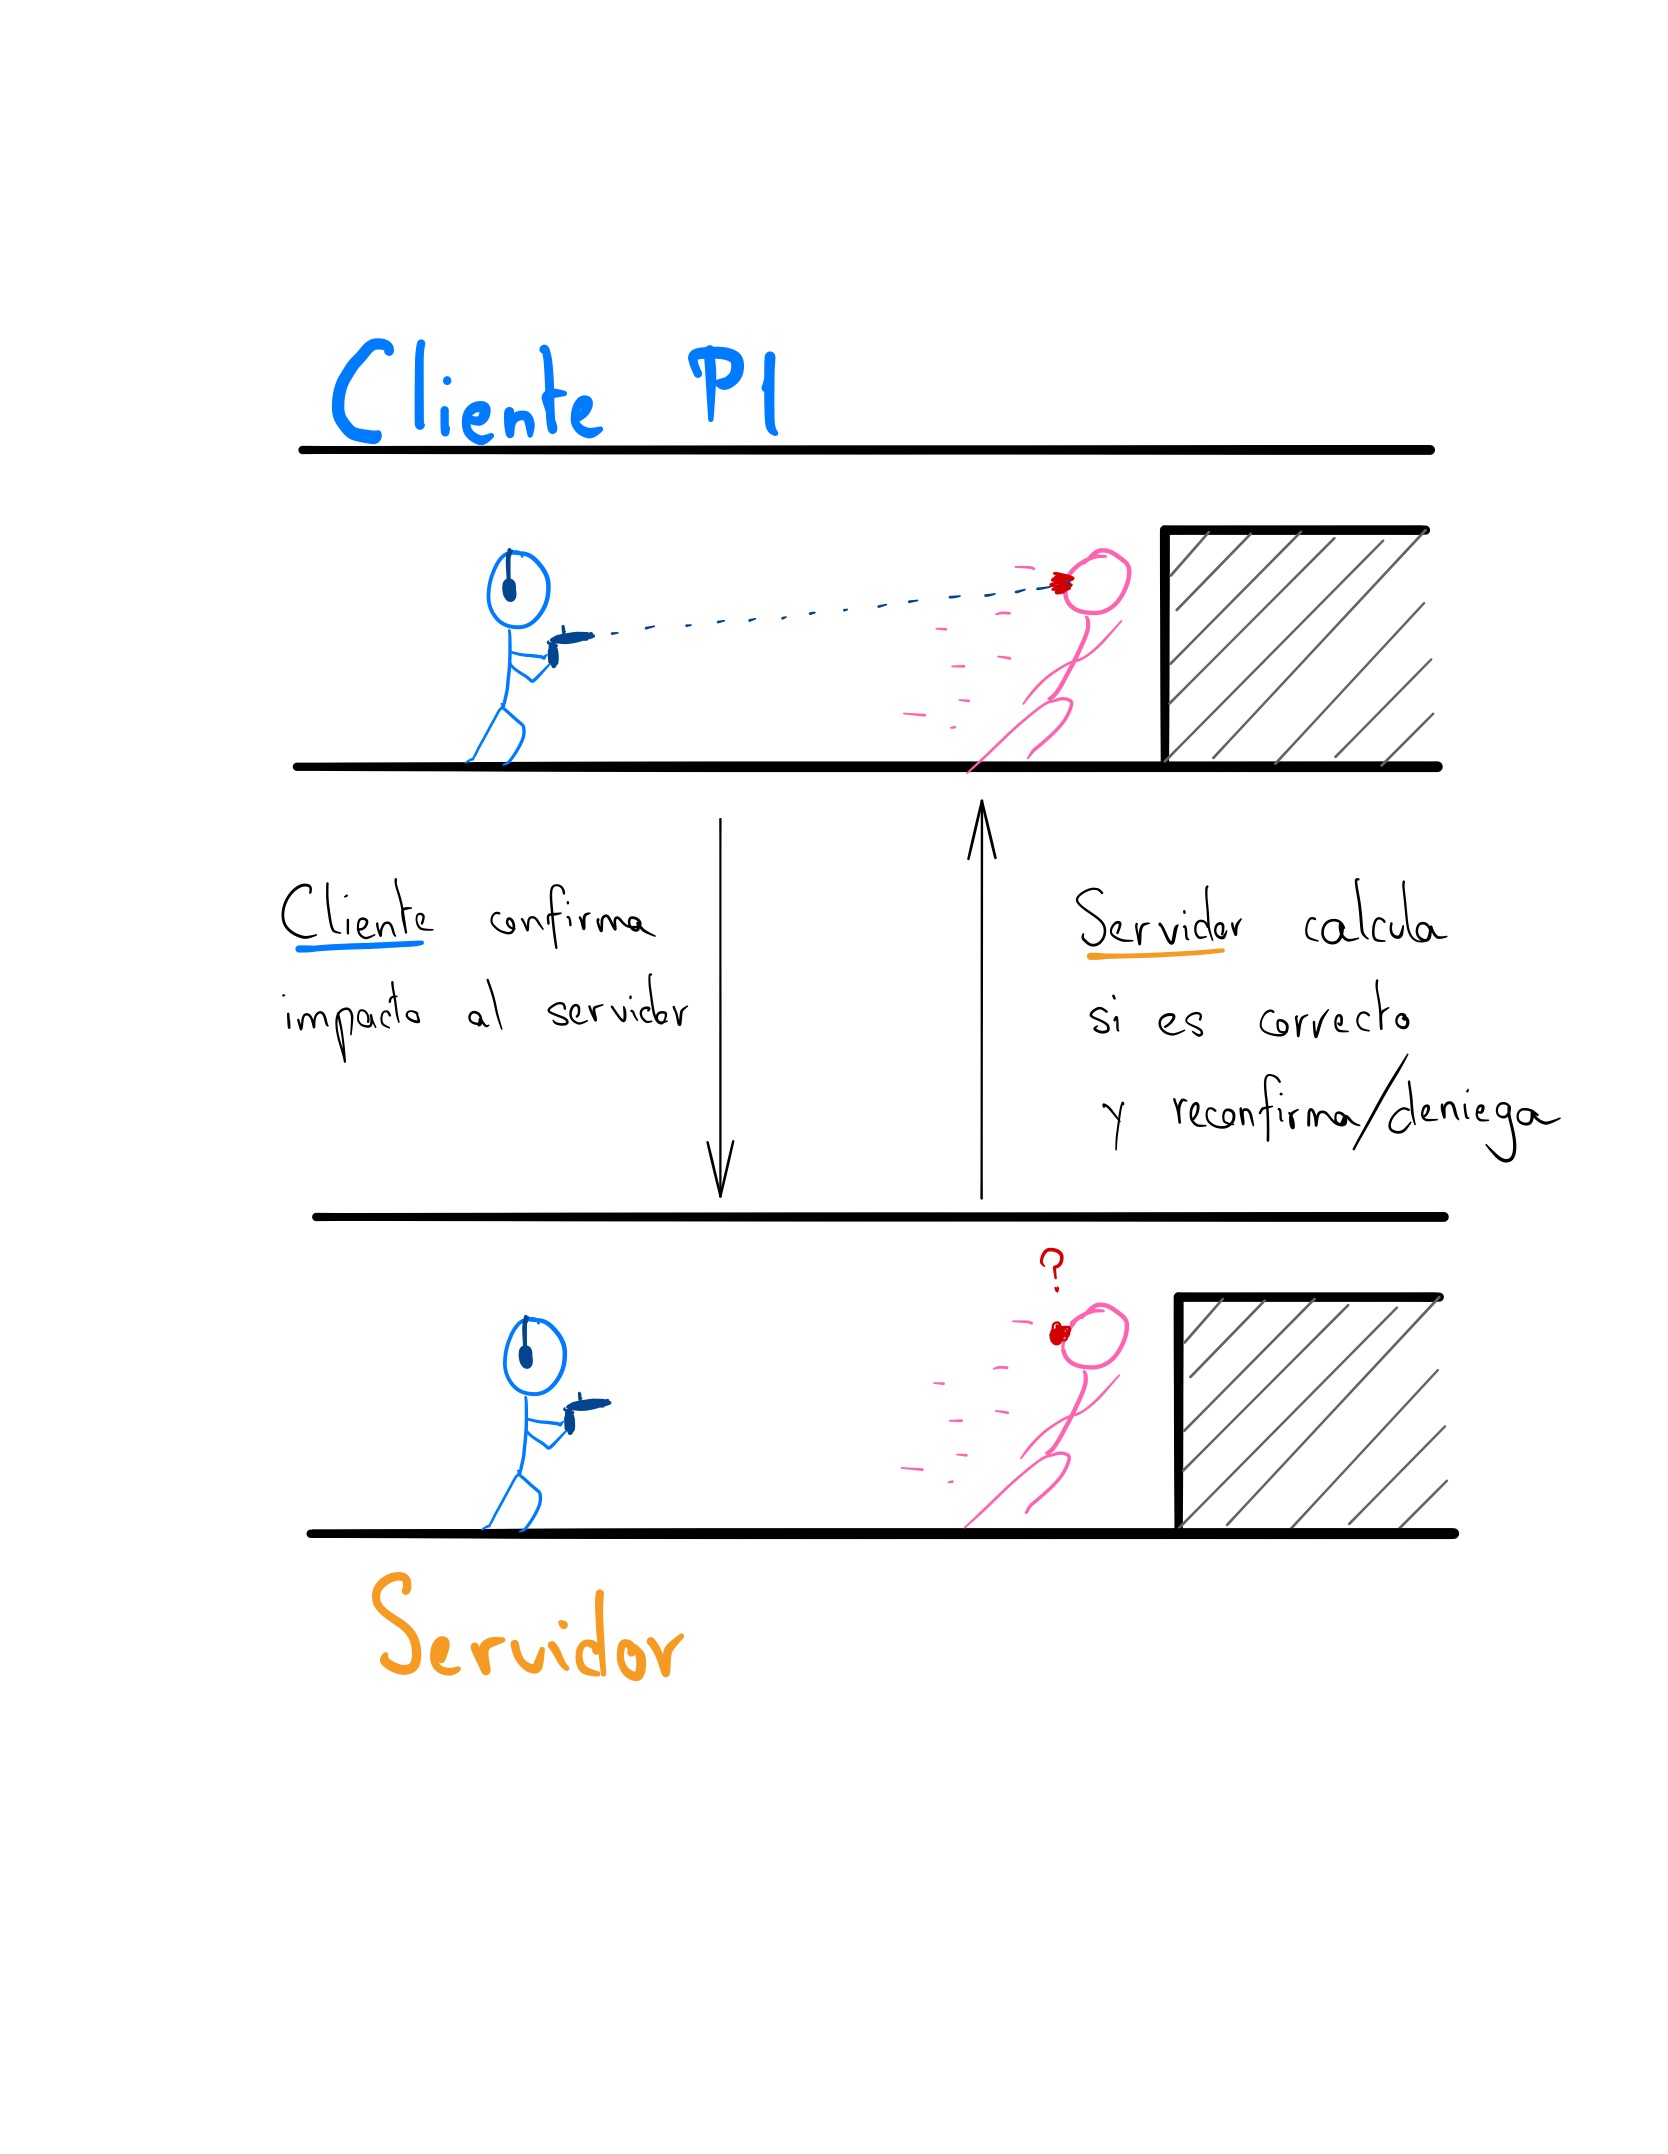 Cliente P1
Cliente confirma
impacto al servidor
Servidor calcula
si es correcto
y reconfirma/deniega
?
Servidor